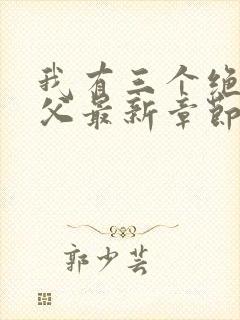 我有三个绝
父最新章節
郭少芸